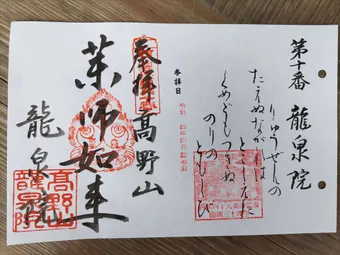 第十番 龍泉院
りゅうせんの
たえぬながれは
とこしえに
くめどもつきぬ
のりの
ともしび
参拝日
奉拝 高野山
薬師如来
龍泉院
高野山
龍泉院